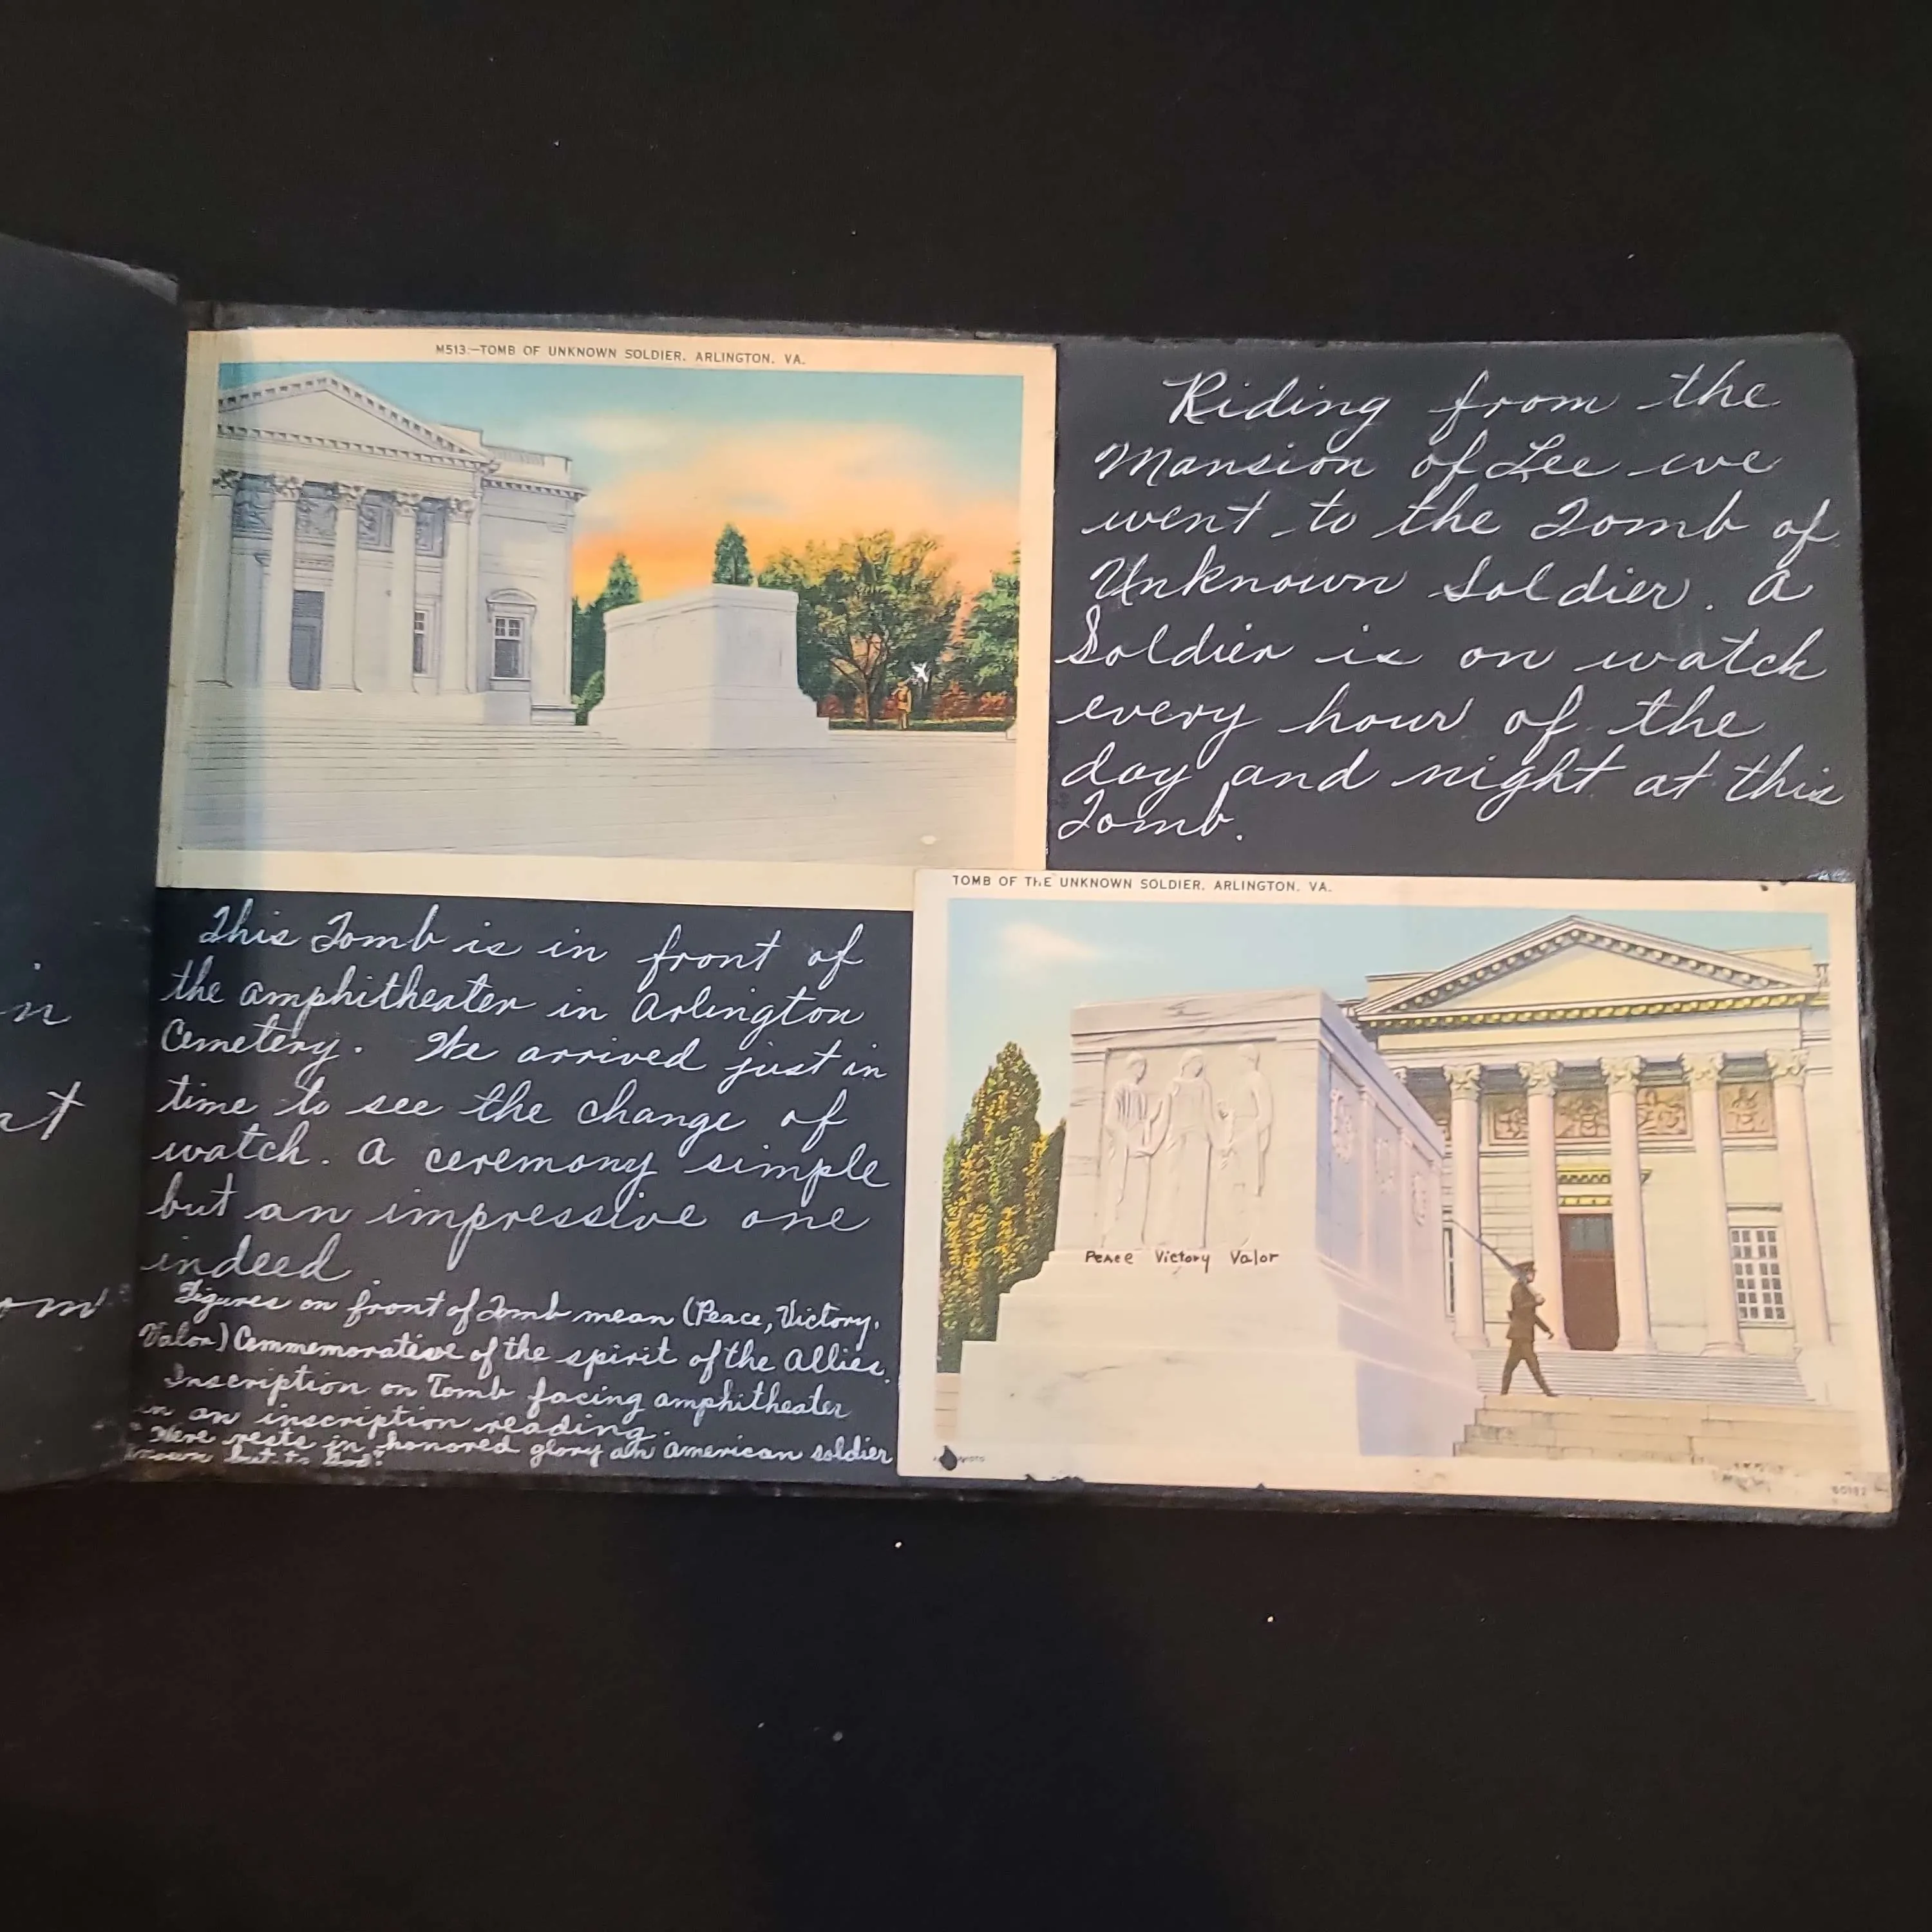 M513.—TOMB OF UNKNOWN SOLDIER, ARLINGTON, VA.
Riding from the
Mansion of Lee we
went to the Tomb of
Unknown Soldier. A
Soldier is on watch
every hour of the
day and night at this
Tomb.
This Tomb is in front of
the amphitheater in Arlington
Cemetery. We arrived just in
time to see the change of
watch. A ceremony simple
but an impressive one
indeed.
Figures on front of Tomb mean (Peace, Victory,
Valor) Commemorative of the spirit of the Allies.
Inscription on Tomb facing amphitheater
in an inscription reading.
"Here rests in honored glory an American soldier
known but to God."
TOMB OF THE UNKNOWN SOLDIER, ARLINGTON, VA.
Peace Victory Valor